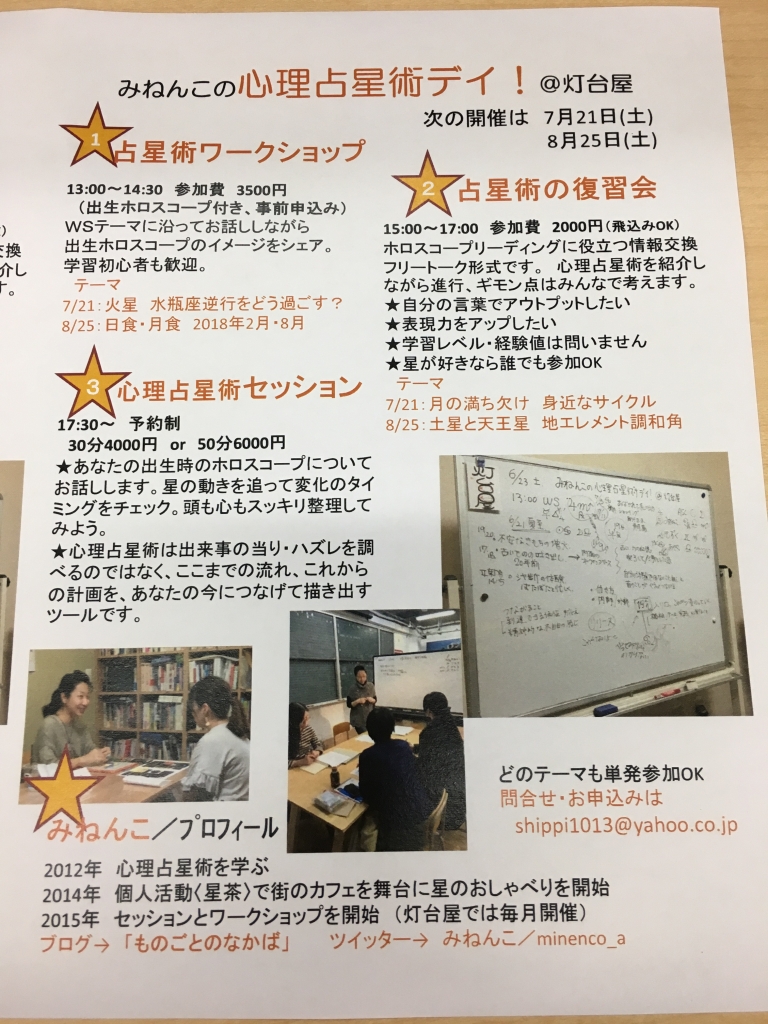 みねんこの心理占星術デイ！＠灯台屋
次の開催は 7月21日(土)
8月25日(土)
1
占星術ワークショップ
13:00～14:30 参加費 3500円
（出生ホロスコープ付き、事前申込み）
WSテーマに沿ってお話ししながら
出生ホロスコープのイメージをシェア。
学習初心者も歓迎。
テーマ
7/21：火星 水瓶座逆行をどう過ごす？
8/25：日食・月食 2018年2月・8月
2
占星術の復習会
15:00～17:00 参加費 2000円（飛込みOK）
ホロスコープリーディングに役立つ情報交換
フリートーク形式です。 心理占星術を紹介し
ながら進行、ギモン点はみんなで考えます。
★自分の言葉でアウトプットしたい
★表現力をアップしたい
★学習レベル・経験値は問いません
★星が好きなら誰でも参加OK
テーマ
7/21：月の満ち欠け 身近なサイクル
8/25：土星と天王星 地エレメント調和角
3
心理占星術セッション
17:30～ 予約制
30分4000円 or 50分6000円
★あなたの出生時のホロスコープについて
お話しします。星の動きを追って変化のタイ
ミングをチェック。頭も心もスッキリ整理して
みよう。
★心理占星術は出来事の当り・ハズレを調
べるのではなく、ここまでの流れ、これから
の計画を、あなたの今につなげて描き出す
ツールです。
6/23 土 みねんこの心理占星術デイ！＠灯台屋
13:00 WS
どのテーマも単発参加OK
問合せ・お申込みは
shippi1013@yahoo.co.jp
みねんこ／プロフィール
2012年 心理占星術を学ぶ
2014年 個人活動〈星茶〉で街のカフェを舞台に星のおしゃべりを開始
2015年 セッションとワークショップを開始 （灯台屋では毎月開催）
ブログ→ 「ものごとのなかば」 ツイッター→ みねんこ／minenco_a
交換
介し
す。